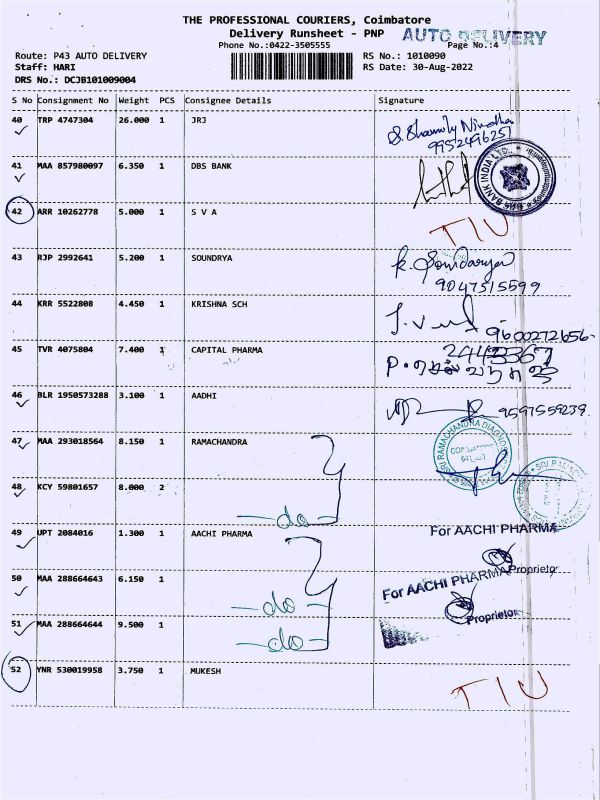 THE PROFESSIONAL COURIERS, Coimbatore
Delivery Runsheet - PNP
AUTO DELIVERY
Phone No.:0422-3505555
Page No.:4
Route: P43 AUTO DELIVERY
RS No.: 1010090
Staff: HARI
RS Date: 30-Aug-2022
DRS No.: DCJB101009004
S No Consignment No Weight PCS Consignee Details Signature
40 TRP 4747304 26.000 1 JRJ
9952496257
41 MAA 857980097 6.350 1 DBS BANK
BANK INDIA LTD.,
42 ARR 10262778 5.000 1 S V A
TIU
43 RJP 2992641 5.200 1 SOUNDRYA
K. Soundarya
9047515599
44 KRR 5522808 4.450 1 KRISHNA SCH
9600272656-
45 TVR 4075804 7.400 1 CAPITAL PHARMA
2443367
46 BLR 1950573288 3.100 1 AADHI
9597559239.
47 MAA 293018564 8.150 1 RAMACHANDRA
SRI RAMACHANDRA DIAGNOS
48 KCY 59801657 8.000 2
-do-
49 UPT 2084016 1.300 1 AACHI PHARMA
For AACHI PHARMA
Proprietor
50 MAA 288664643 6.150 1
-do-
For AACHI PHARMA
Proprietor
51 MAA 288664644 9.500 1
-do-
52 YNR 530019958 3.750 1 MUKESH
TIU